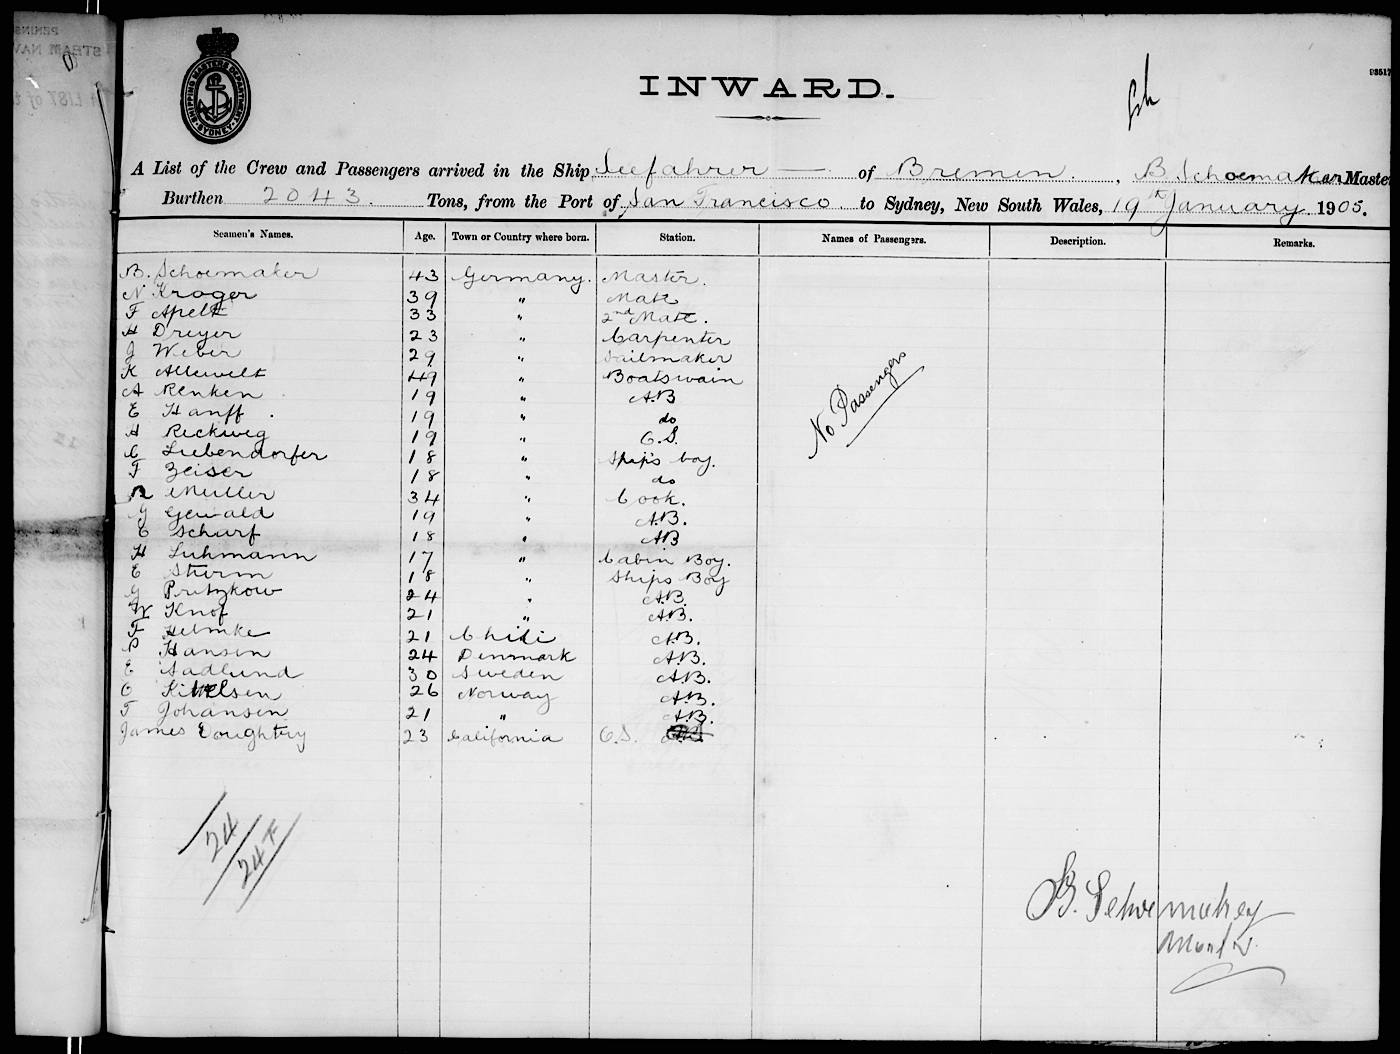 SHIPPING MASTERS DEPARTMENT
SYDNEY
INWARD.
93517
A List of the Crew and Passengers arrived in the Ship Seefahrer — of Bremen, B. Schoemaker Master
Burthen 2043. Tons, from the Port of San Francisco to Sydney, New South Wales, 19th January 1905.
Seamen's Names. Age. Town or Country where born. Station. Names of Passengers. Description. Remarks.
B. Schoemaker 43 Germany. Master.
N Kroger 39 " Mate
F Apelt 33 " 2nd Mate.
H Dreyer 23 " Carpenter
J Weber 29 " Sailmaker
K Allewelt 49 " Boatswain
A Renken 19 " A.B
E Hanff. 19 " do
H Reckweg 19 " O.S.
C Liebendorfer 18 " Ship's boy.
F Zeiser 18 " do
R Muller 34 " Cook.
G Gewald 19 " A.B.
E Scharf 18 " AB
H Luhmann 17 " Cabin Boy.
E Sturm 18 " Ships Boy
G Pritzkow 24 " A.B.
W Knof 21 " A.B.
F Helmke 21 Chili A.B.
P Hansen 24 Denmark A.B.
E Sadlund 30 Sweden A.B.
O Kittelsen 26 Norway A.B.
T Johansen 21 " A.B.
James Doughtry 23 California O.S.
No Passengers
24
24 F
B. Schoemaker
Master